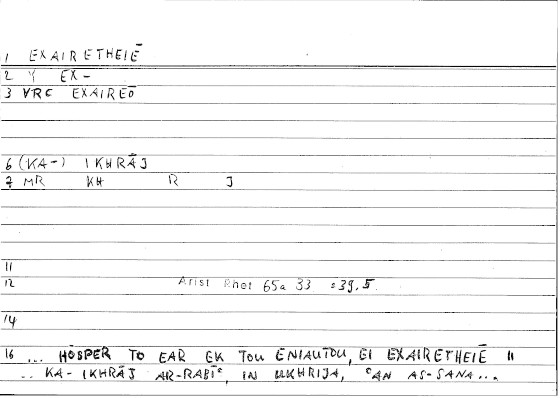 1 EXAIRETHEIĒ
2 Y EX-
3 VRC EXAIREŌ
6 (KA-) IKHRĀJ
7 MR KH R J
11
12 Arist Rhet 65a 33 :39,5.
14
16 ... HŌSPER TO EAR EK TOU ENIAUTOU, EI EXAIRETHEIĒ 11
... KA- IKHRĀJ AR-RABĪʿ, IN UKHRIJA, ʿAN AS-SANA...